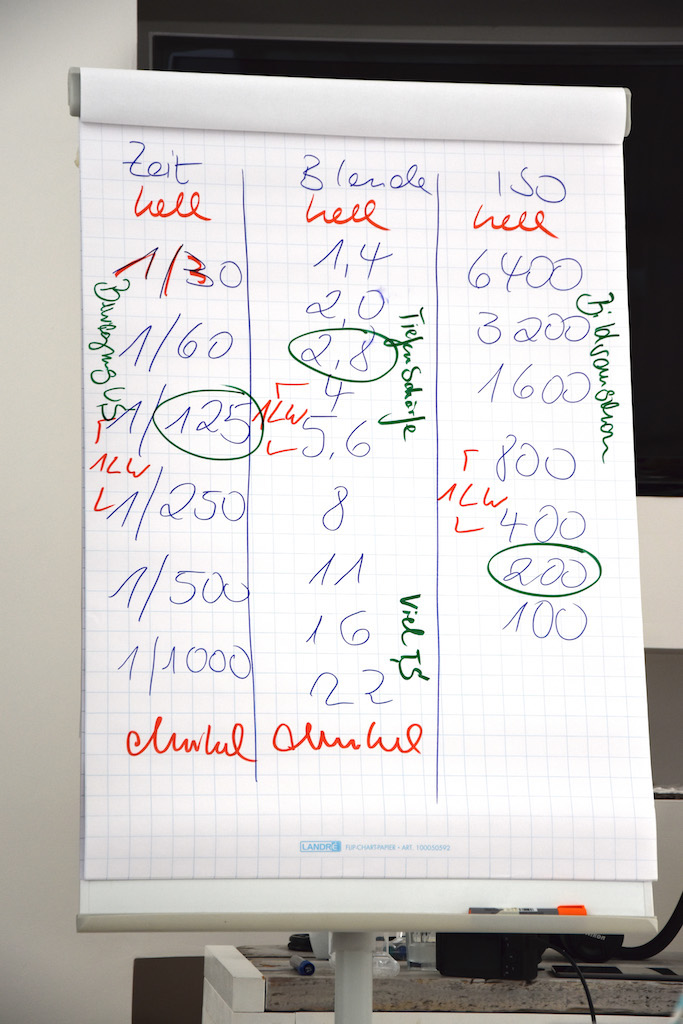 Zeit
hell
1/30
1/60
1/125
1/250
1/500
1/1000
dunkel
1LW
Blende
hell
1,4
2,0
2,8
4
5,6
8
11
16
22
dunkel
1LW
Tiefenschärfe
Viel TS
ISO
hell
6400
3200
1600
800
400
200
100
1LW
Bildrauschen
LANDRÉ FLIP-CHART-PAPIER • ART. 100050592